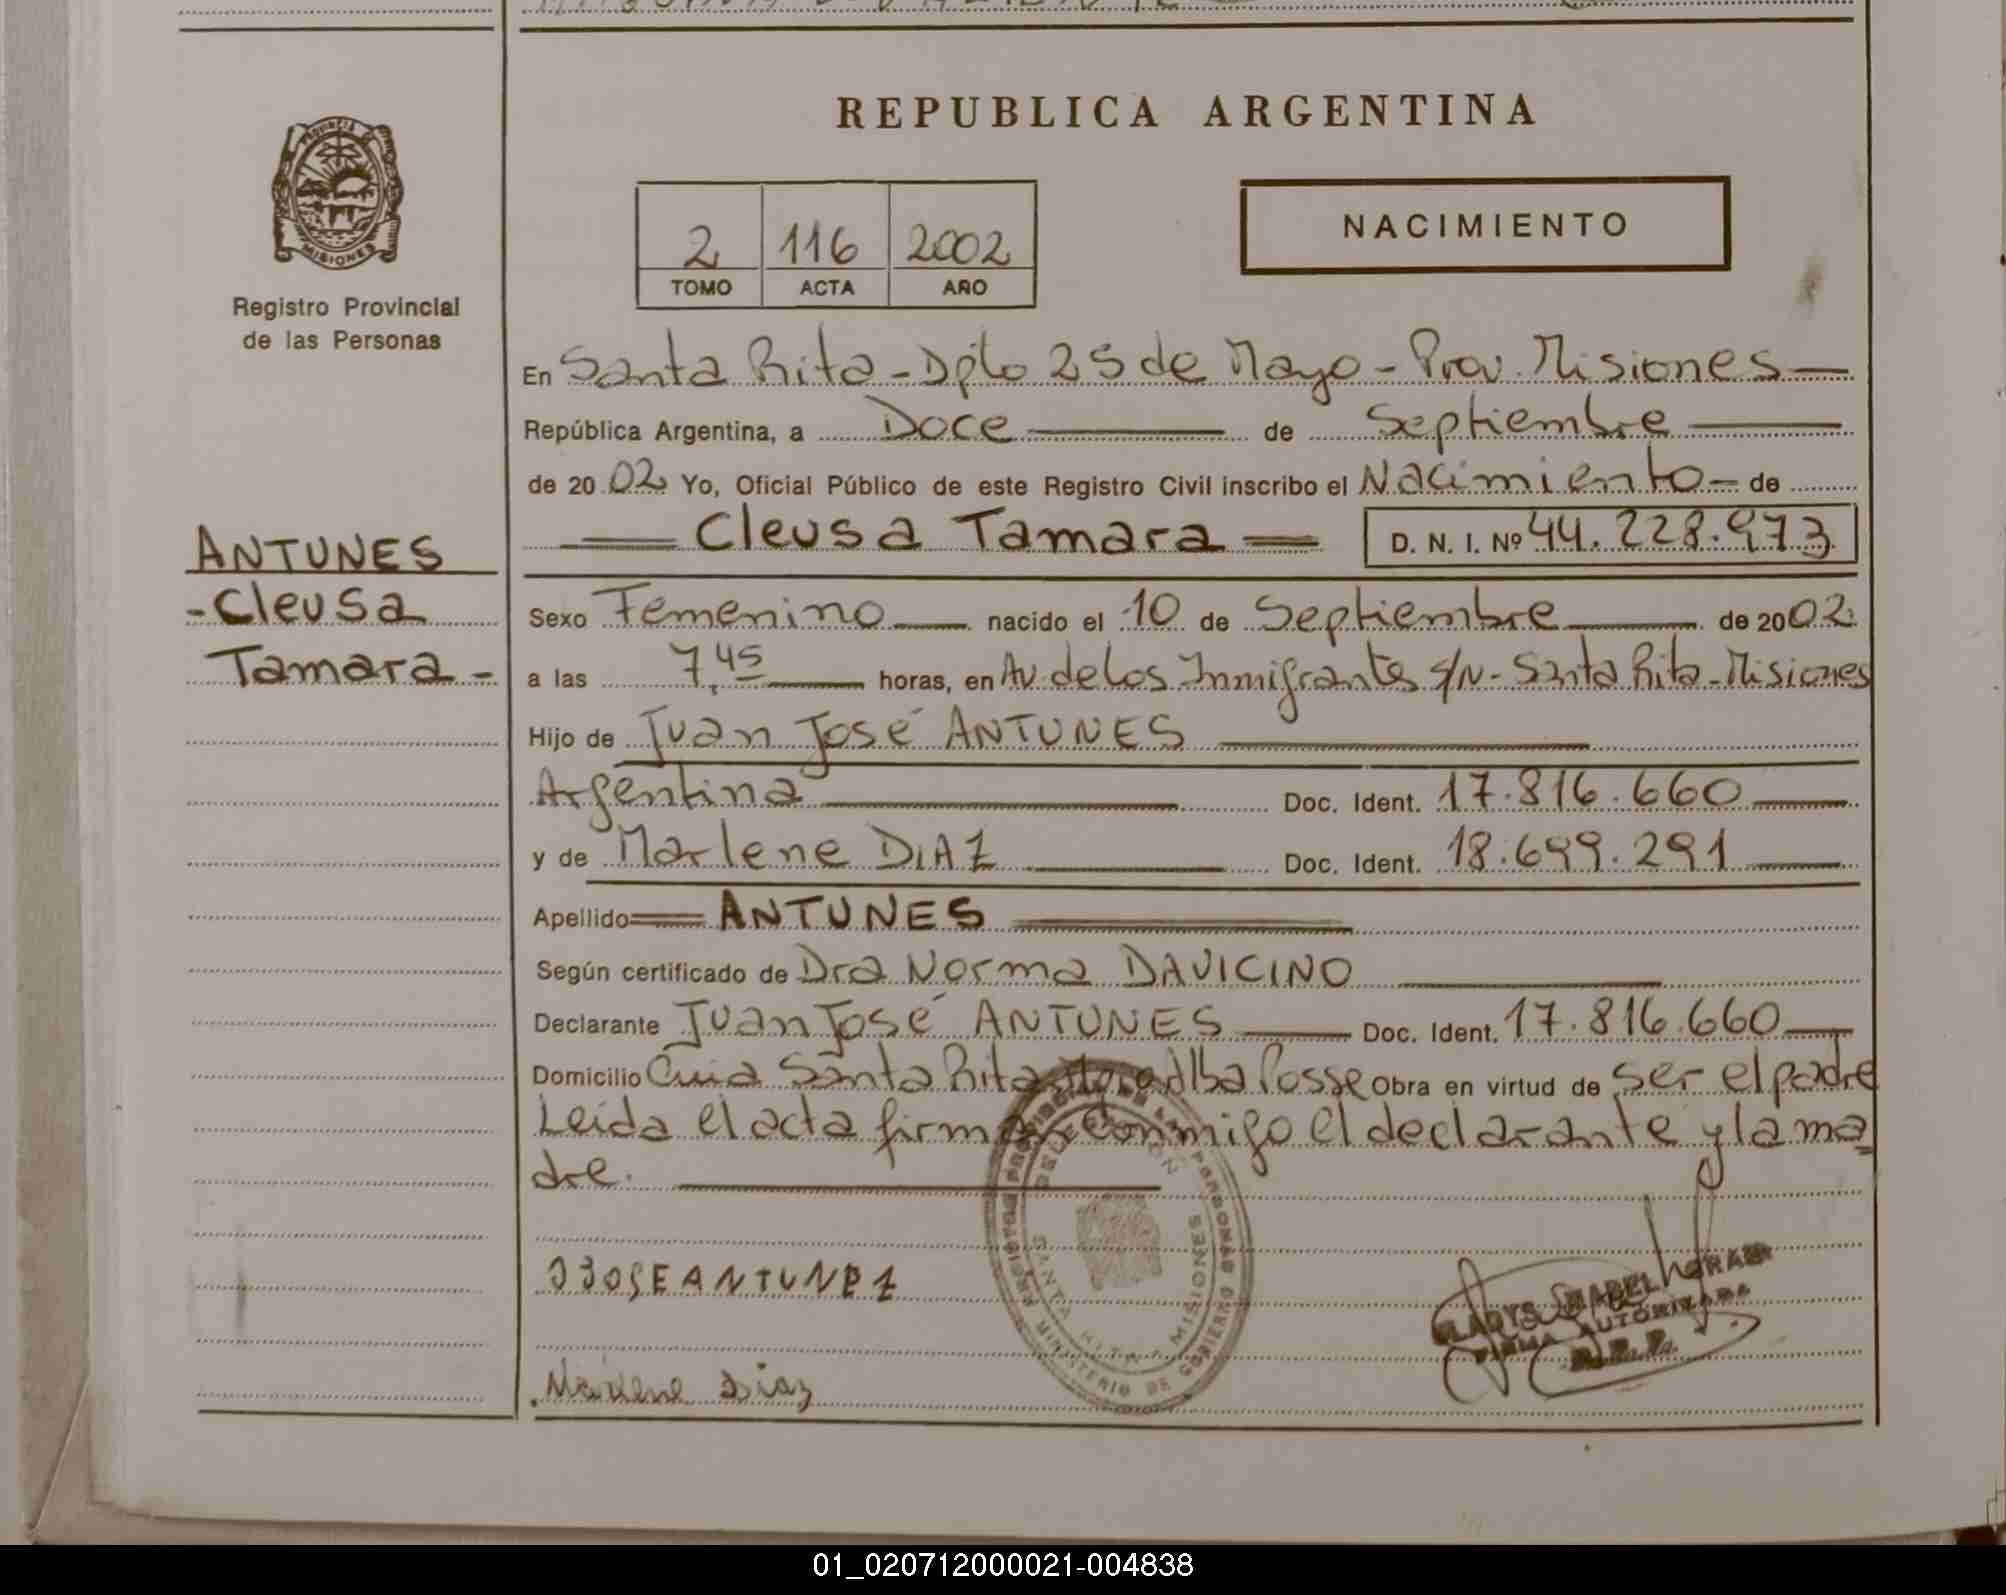 REPUBLICA ARGENTINA
PROVINCIA
MISIONES
Registro Provincial
de las Personas
2 116 2002
TOMO ACTA AÑO
NACIMIENTO
En Santa Rita - Dpto 25 de Mayo - Prov. Misiones
República Argentina, a Doce de Septiembre
de 20 02 Yo, Oficial Público de este Registro Civil inscribo el Nacimiento de
Cleusa Tamara D. N. I. Nº 44.228.973
ANTUNES
- Cleusa
Tamara -
Sexo Femenino nacido el 10 de Septiembre de 20 02
a las 7,45 horas, en Av. de Los Inmigrantes s/N - Santa Rita - Misiones
Hijo de Juan José ANTUNES
Argentina Doc. Ident. 17.816.660
y de Marlene DIAZ Doc. Ident. 18.699.291
Apellido ANTUNES
Según certificado de Dra Norma DAVICINO
Declarante Juan José ANTUNES Doc. Ident. 17.816.660
Domicilio Santa Rita Alba Posse Obra en virtud de ser el padre
Leída el acta firman conmigo el declarante y la ma
dre.
SANTA RITA MISIONES
MINISTERIO DE GOBIERNO
JJOSE ANTUNEZ
GLADYS ISABEL
FIRMA AUTORIZADA
R.P.P.
Marlene Diaz
01_020712000021-004838